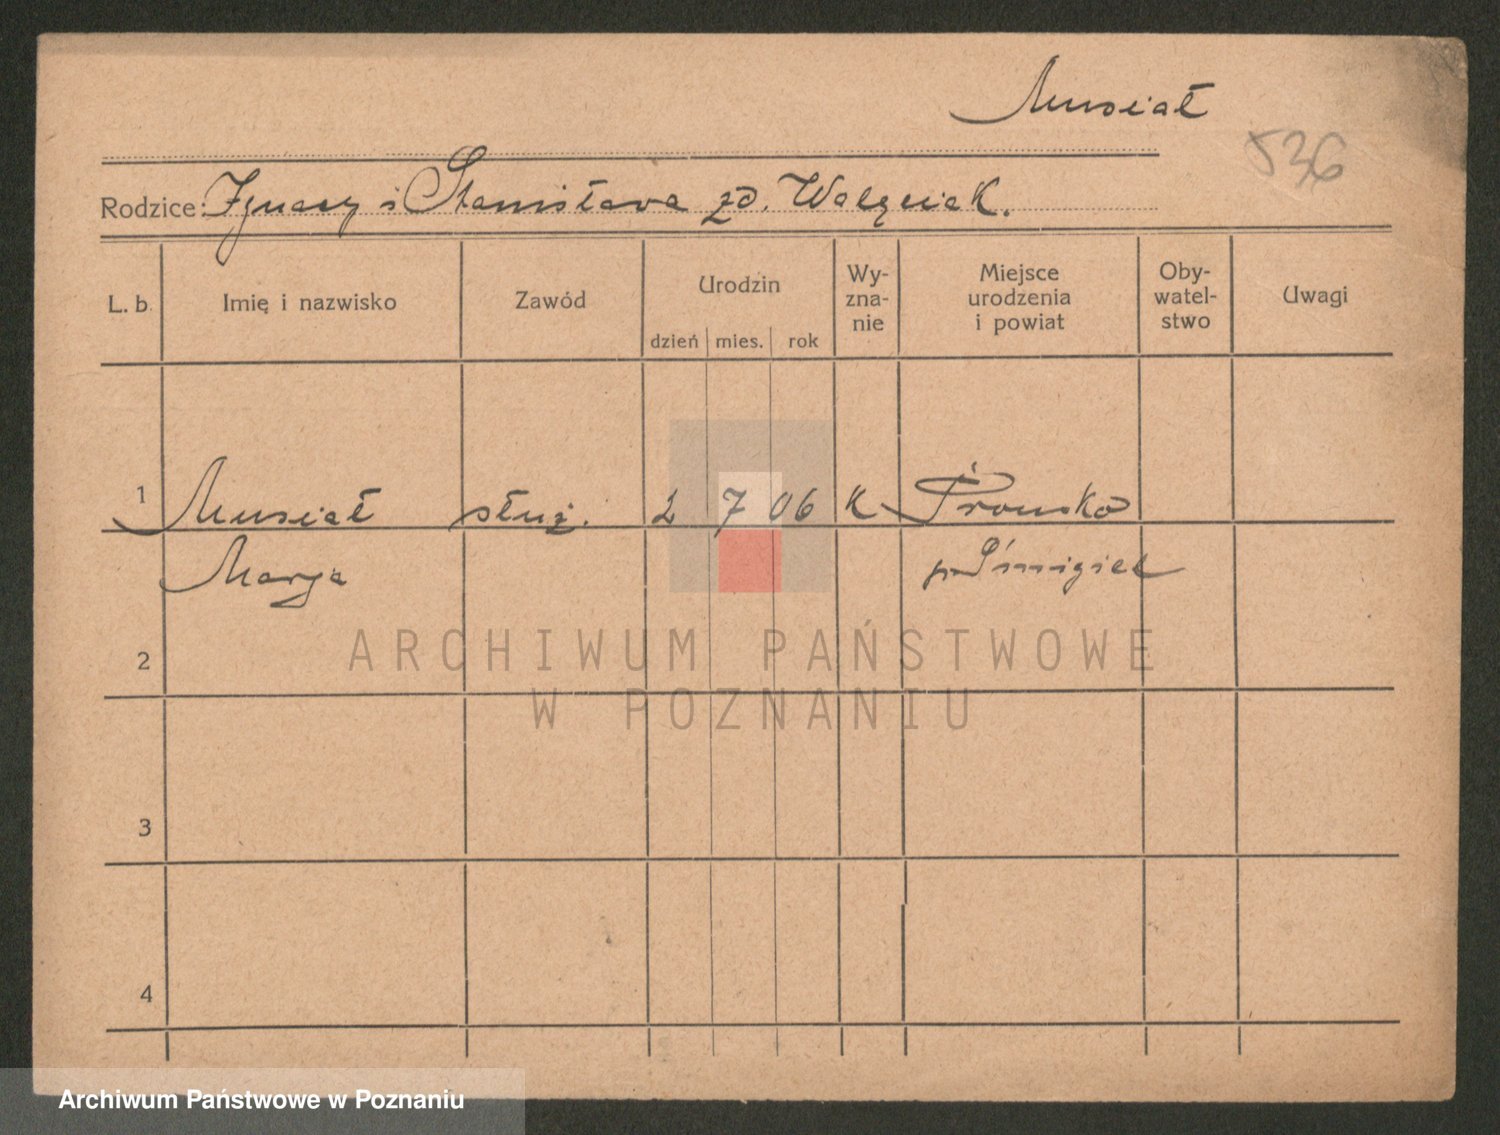 Musiał
536
Rodzice: Ignacy i Stanisława zd. Walęciak.
L. b. Imię i nazwisko Zawód Urodzin Wy-zna-nie Miejsce urodzenia i powiat Oby-watel-stwo Uwagi
dzień mies. rok
1 Musiał służ. 2 7 06 K
Marja p. Śmigiel
2
ARCHIWUM PAŃSTWOWE
W POZNANIU
3
4
Archiwum Państwowe w Poznaniu